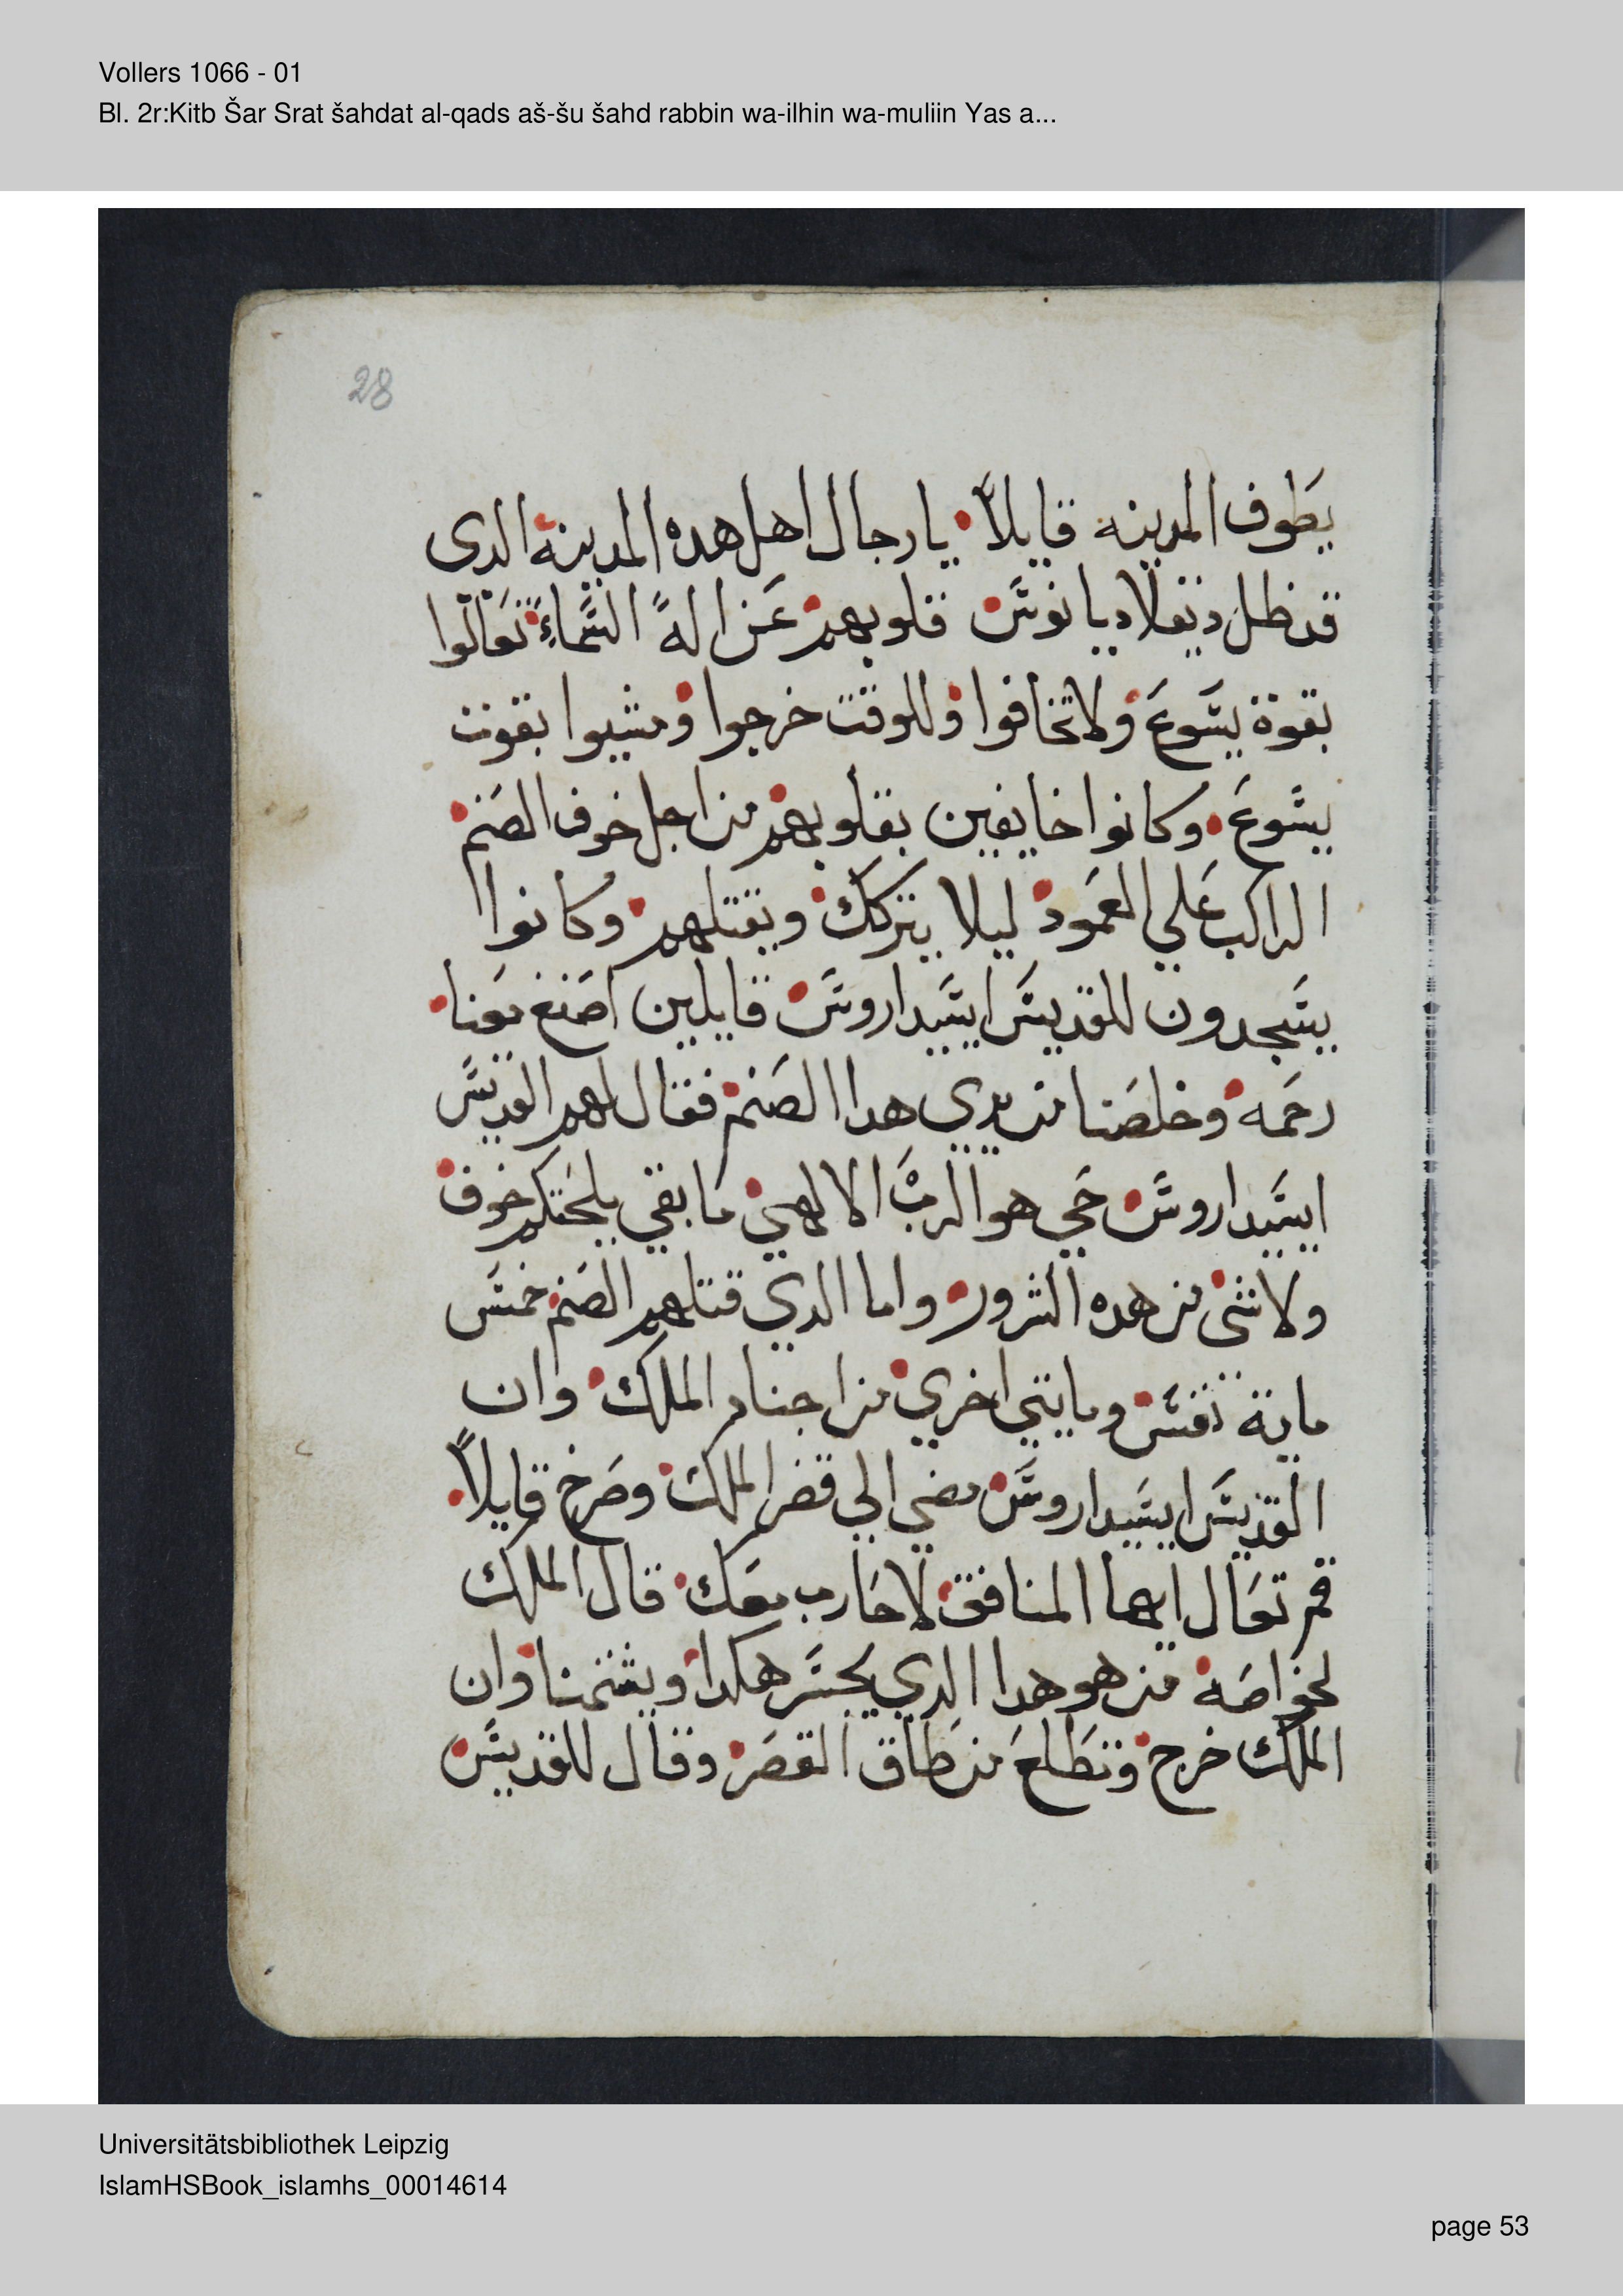 Vollers 1066 - 01
Bl. 2r:Kitb Šar Srat šahdat al-qads aš-šu šahd rabbin wa-ilhin wa-muliin Yas a...
28
يطوف المدينه قايلاً يا رجال اهل هده المدينة الدى
قد ظل دقلاديانوس قلوبهم عن اله السماء تعالوا
بقوة يسوع ولا تخافوا وللوقت خرجوا ومشيوا بقوت
يسوع وكانوا خايفين بقلوبهم من اجل خوف الصنم
الراكب علي العمود ليلا يتركك ويقتلهم وكانوا
يسجدون للقديس ايسيداروس قايلين اصنع معنا
رحمه وخلصنا من يدي هدا الصنم فقال لهم القديس
ايسيداروس حي هو الرب الالهي ما بقي يلحقكم خوف
ولا شى من هده الشرور واما الدي قتلهم الصنم خمس
ماية نفس ومايتي اخري من اجناد الملك وان
القديس ايسيداروس مضي الي قصر الملك وصرخ قايلاً
قم تعال ايها المنافق لاحارب معك قال الملك
لخواصه من هو هدا الدي يجسر هكدا ويشتمنا وان
الملك خرج وتطلع من طاق القصر وقال للقديس
Universitätsbibliothek Leipzig
IslamHSBook_islamhs_00014614
page 53